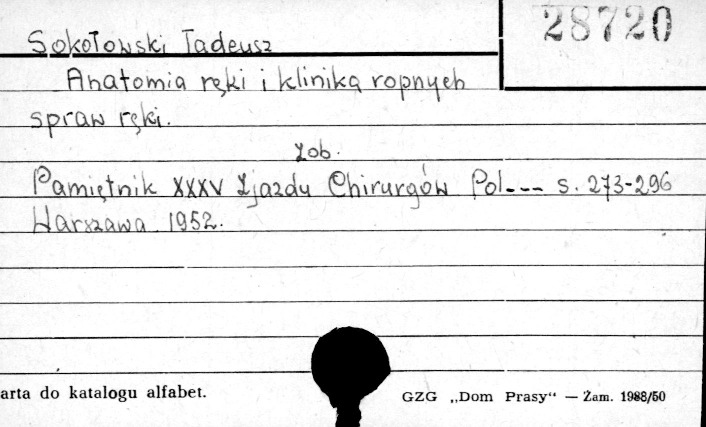 28720
Sokołowski Tadeusz
Anatomia ręki i klinika ropnych
spraw ręki.
Zob.
Pamiętnik XXXV Zjazdu Chirurgów Pol--- s. 273-296
Warszawa 1952.
arta do katalogu alfabet.
GZG „Dom Prasy“ — Żam. 1988/50